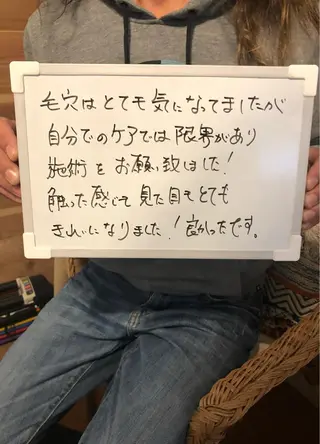 毛穴はとても気になってましたが
自分でのケアでは限界があり
施術をお願い致しました!
触った感じも見た目もとても
きれいになりました!良かったです。